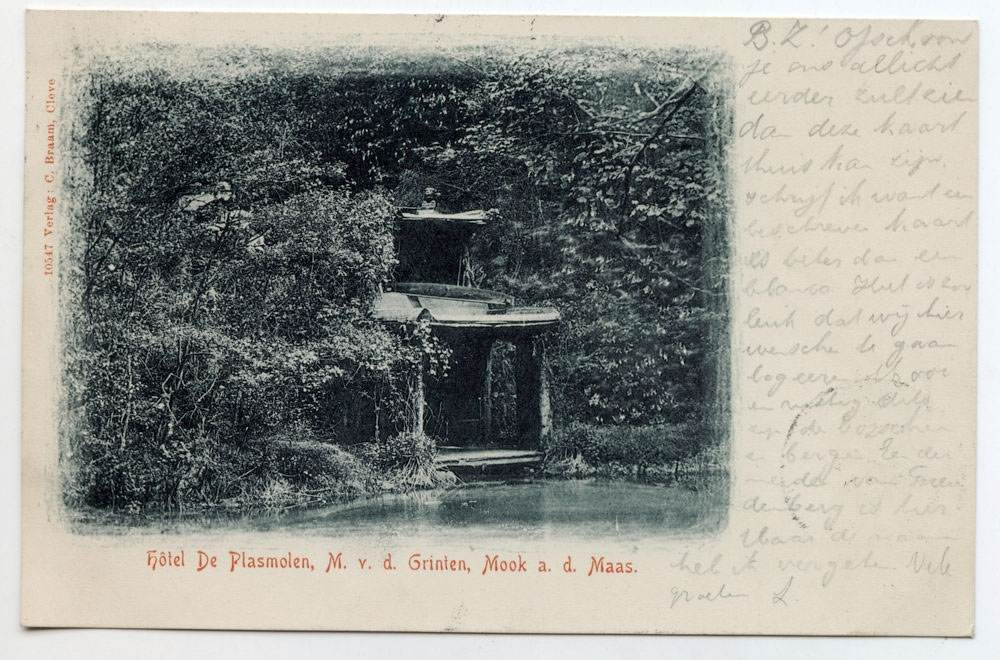 10547 Verlag: C. Braam, Cleve
Hôtel De Plasmolen, M. v. d. Grinten, Mook a. d. Maas.
B.Z! Ofschoon
je ons allicht
eerder zult zien
dan deze kaart
thuis kan zijn,
schrijf ik want een
beschreven kaart
is beter dan een
blanco. Het is zoo
leuk dat wij hier
wensche te gaan
logeeren zoo
en rustig
op de bosschen
en bergen. En de
van
denberg is hier.
Maar de naam
heb ik vergeten. Vele
groeten L.